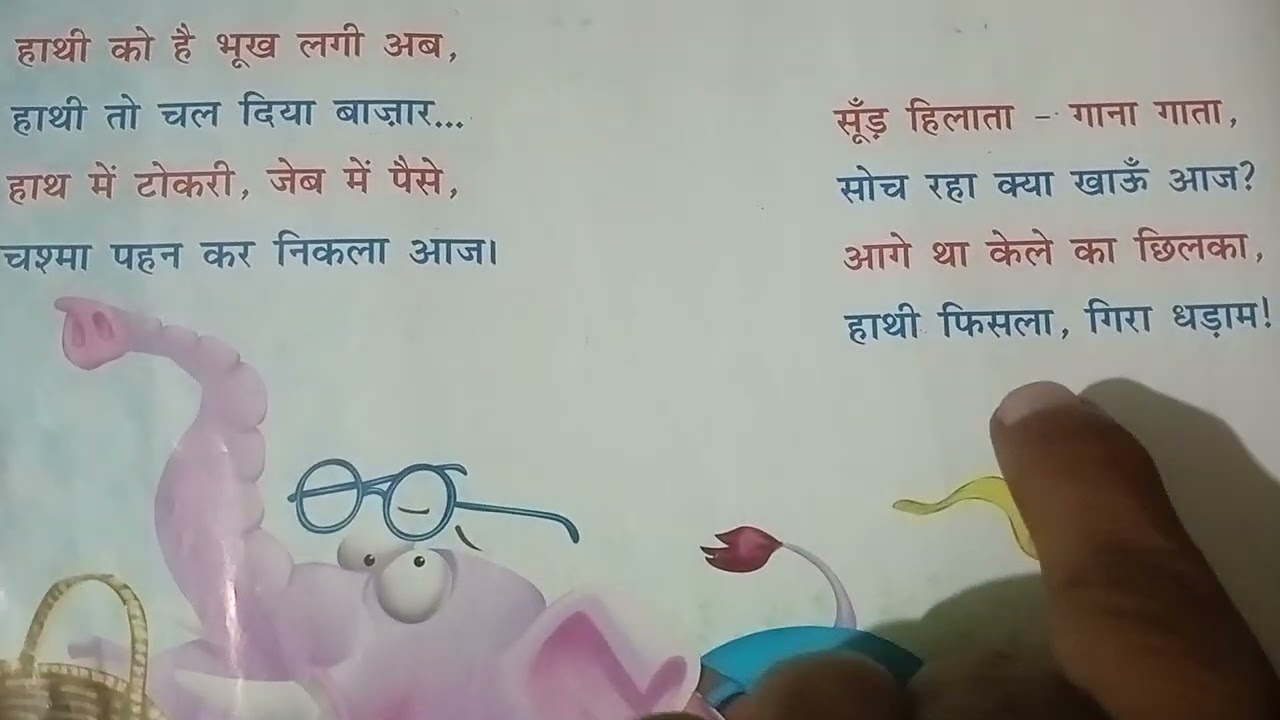 हाथी को है भूख लगी अब,
हाथी तो चल दिया बाज़ार...
हाथ में टोकरी, जेब में पैसे,
चश्मा पहन कर निकला आज।
सूँड़ हिलाता - गाना गाता,
सोच रहा क्या खाऊँ आज?
आगे था केले का छिलका,
हाथी फिसला, गिरा धड़ाम!